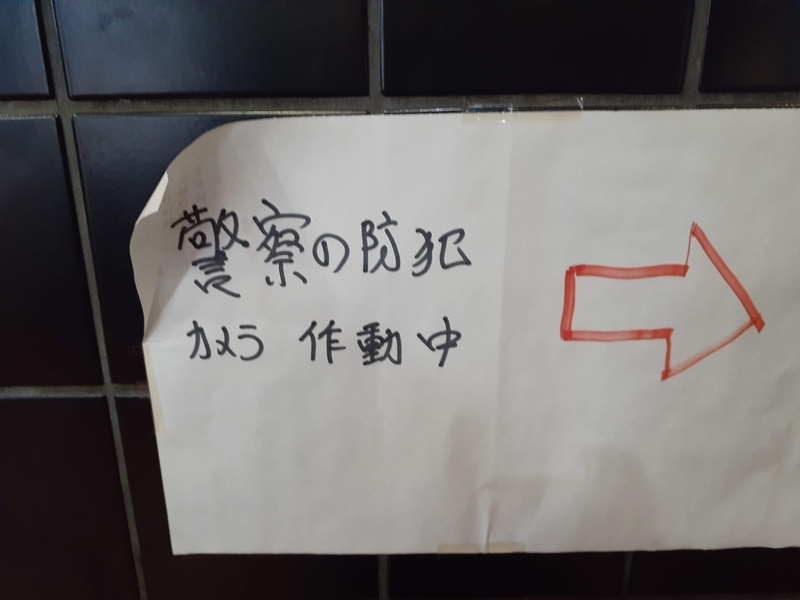 警察の防犯
カメラ 作動中